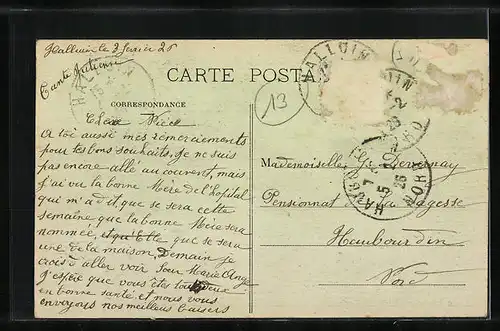 Halluin le 3 février 26
CARTE POSTA
HALLUIN
HALLUIN
13
CORRESPONDANCE
Chère Nièce
A toi aussi mes remerciements
pour tes bons souhaits, je ne suis
pas encore allé au couvent, mais
j'ai vu la bonne Mère de l'hôpital
qui m'a dit que se sera cette
semaine que la bonne Mère sera
nommée, et qu'Elle que se sera
une de la maison, Demain je
crois à aller voir Sœur Marie Ange
J'espère que vous êtes toujours
en bonne santé et nous vous
envoyons nos meilleurs baisers
Mademoiselle
Pensionnat de la Sagesse
Haubourdin
Nord
NORD